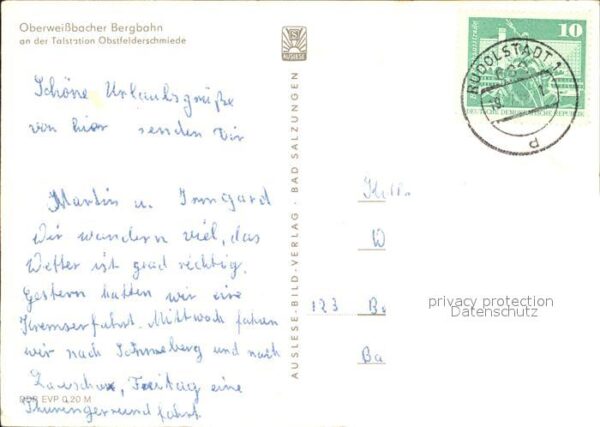 Oberweißbacher Bergbahn
an der Talstation Obstfelderschmiede
AUSLESE
10
DEUTSCHE DEMOKRATISCHE REPUBLIK
RUDOLSTADT 1
d
Schöne Urlaubsgrüße
von hier senden Dir
Martin u. Irmgard
Wir wandern viel, das
Wetter ist grad richtig.
Gestern hatten wir eine
Kremserfahrt. Mittwoch fahren
wir nach Sonneberg und nach
Lauscha, Freitag eine
Thüringenrundfahrt.
DDR EVP 0,20 M
AUSLESE-BILD-VERLAG · BAD SALZUNGEN
W
123 B
Ba
privacy protection
Datenschutz